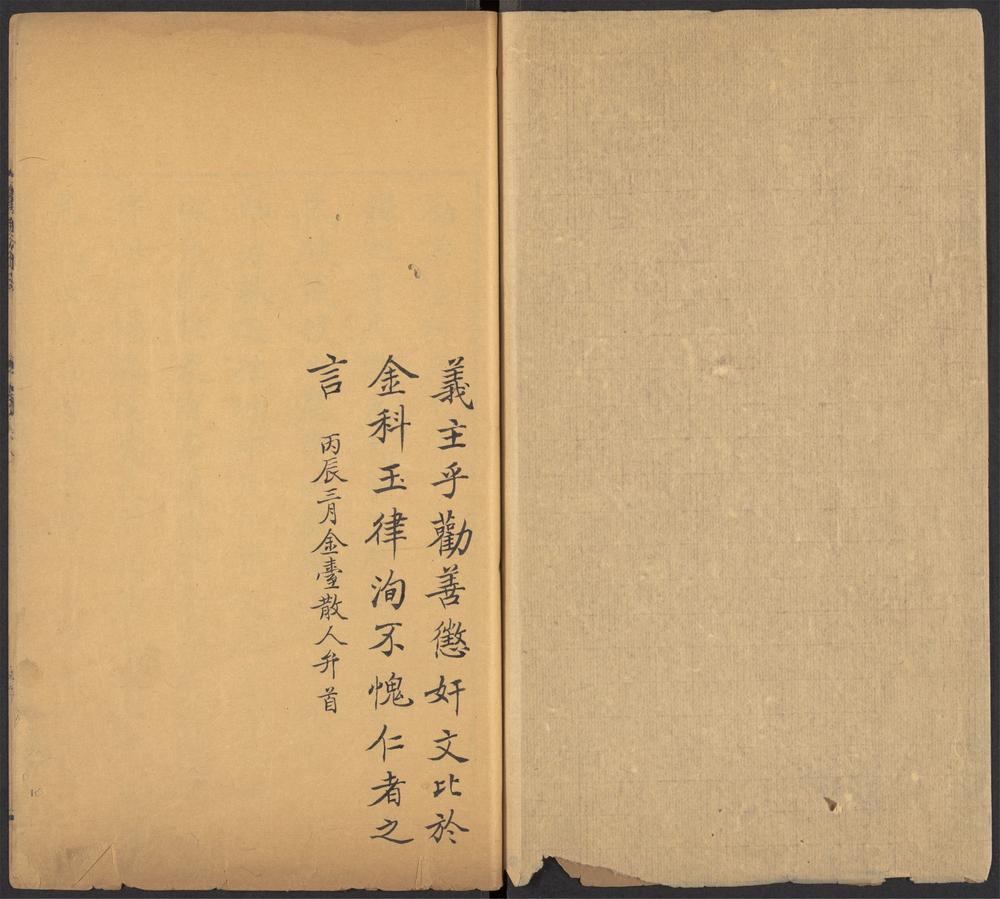 義主乎勸善懲奸文比於
金科玉律洵不愧仁者之
言
丙辰三月金臺散人弁首